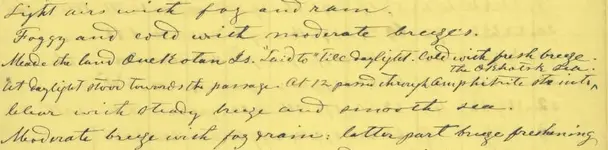 Light airs with fog and rain.
Foggy and cold with moderate breezes.
Made the land Onekotan Is. "Laid to" till daylight. Cold with fresh breeze.
the Okhotsk Sea.
At daylight stood towards the passage. At 12 passed through Amphitrite straits,
clear with steady breeze and smooth sea.
Moderate breeze with fog & rain: latter part breeze freshening